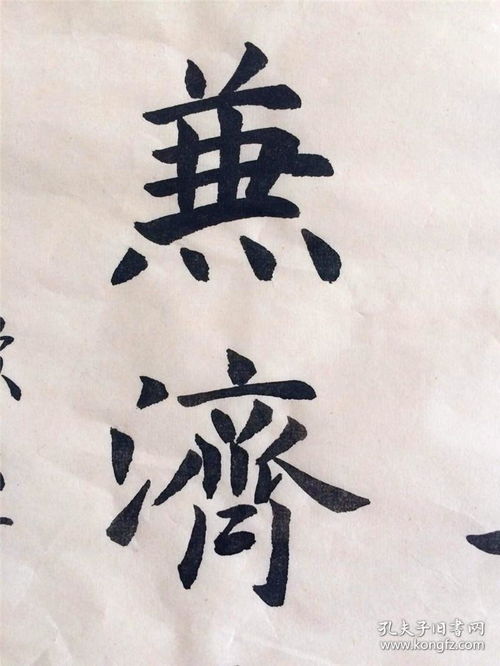 兼濟
孔夫子旧书网
www.kongfz.com